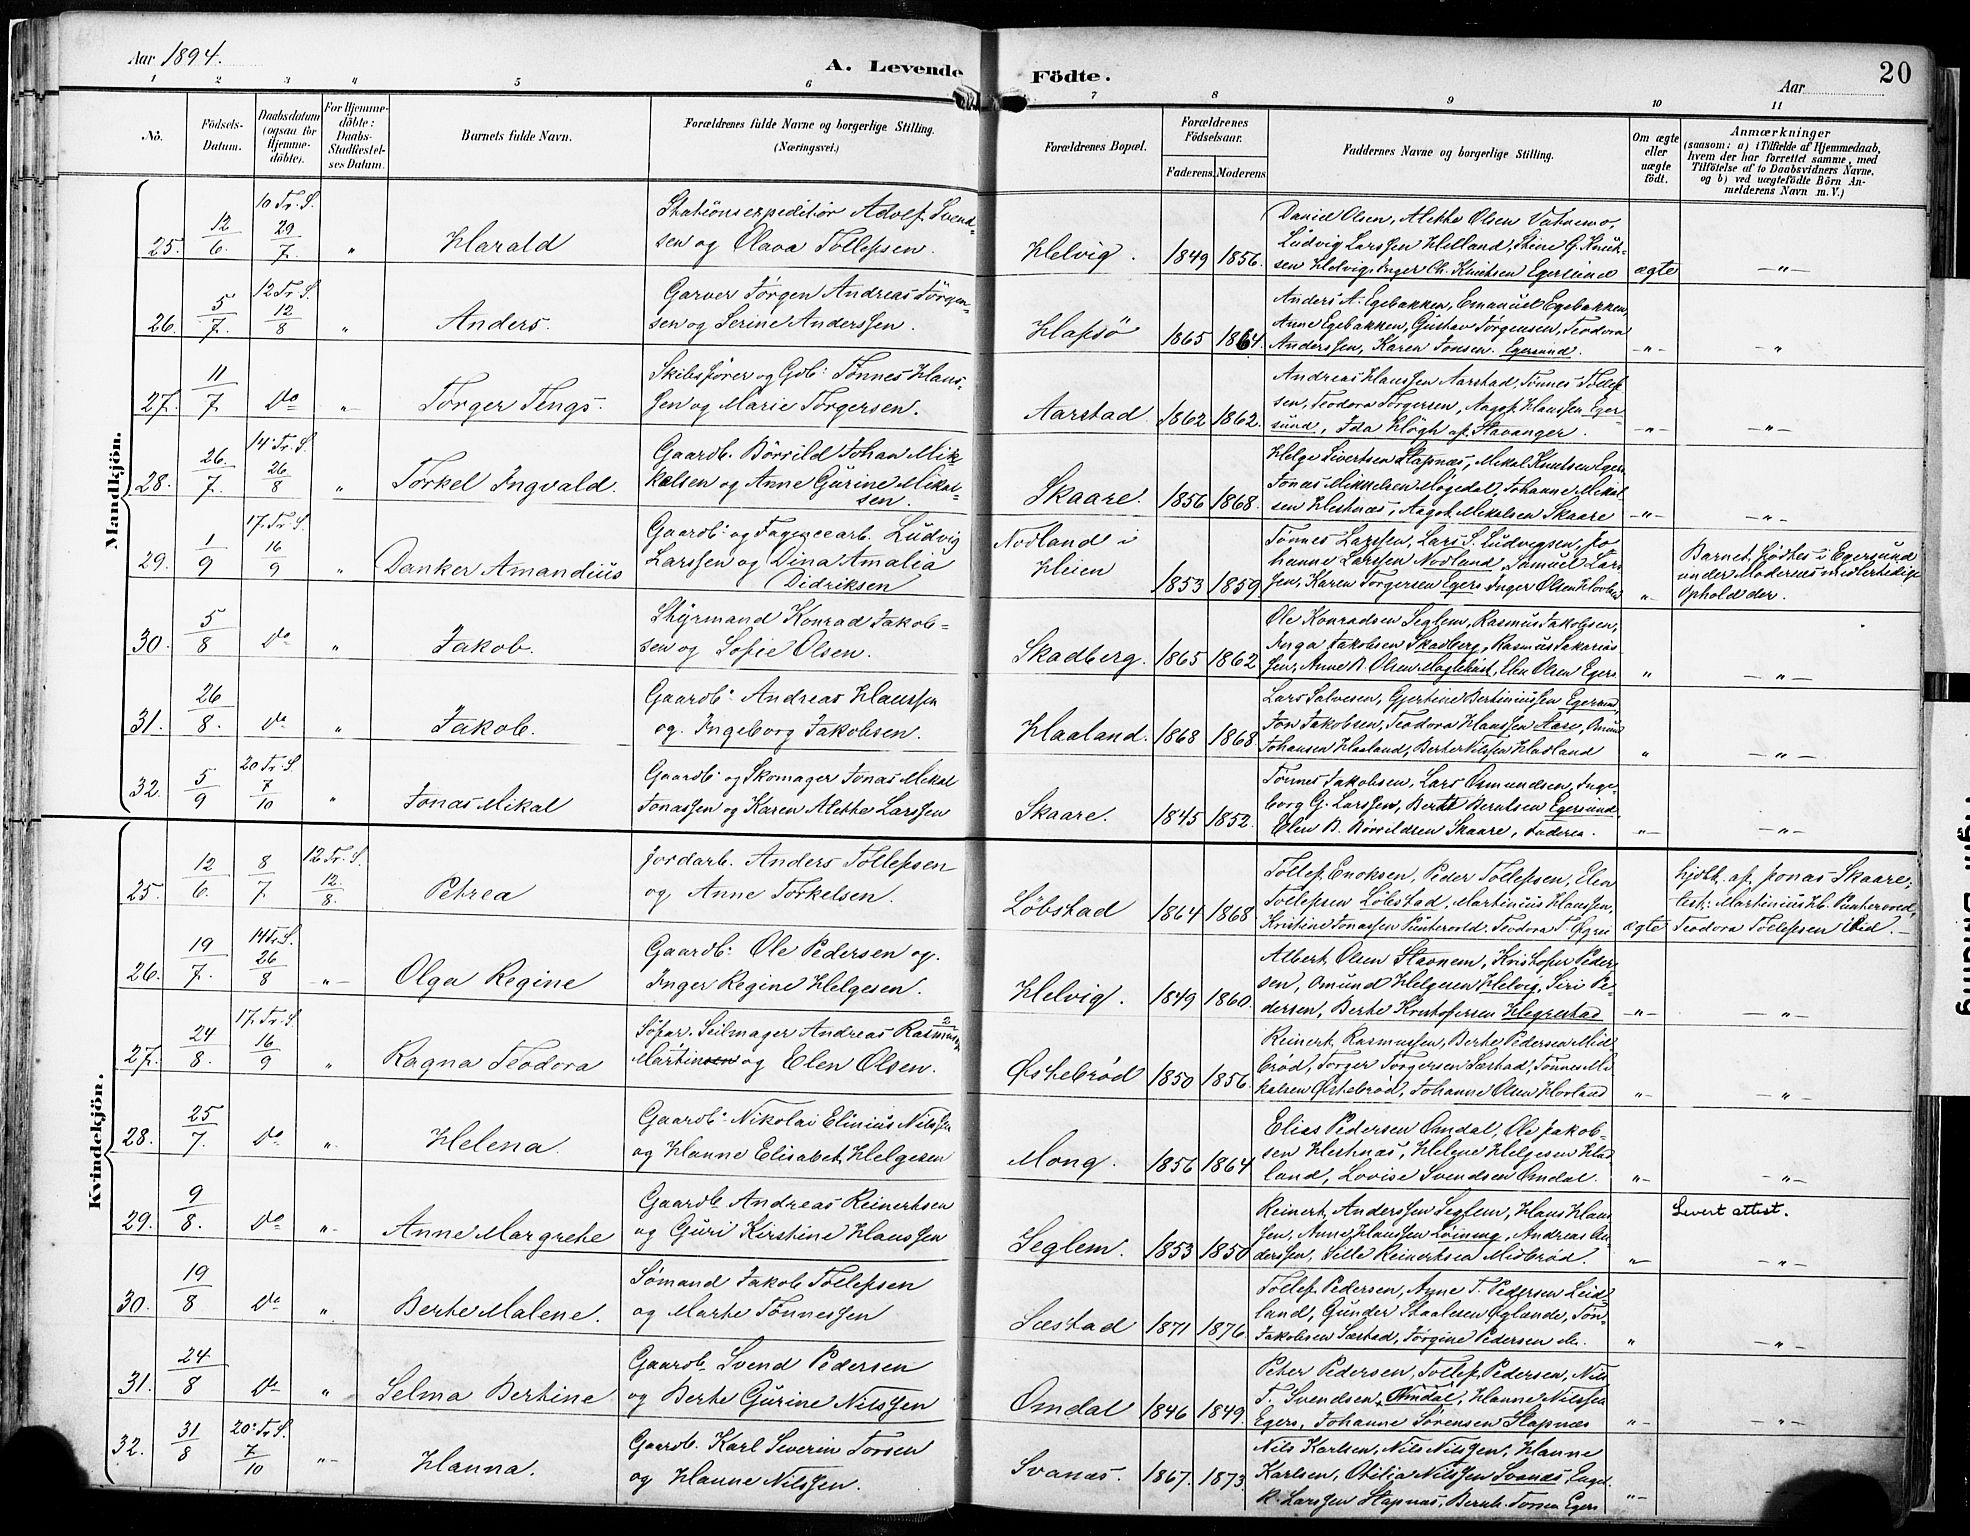 Aar 1894.
A. Levende Födte.
Aar
20
1 2 3 4 5 6 7 8 9 10 11
No.
Födsels-Datum.
Daabsdatum (ogsaa for Hjemmedöbte).
For Hjemmedöbte: Daabs-Stadfæstelses Datum.
Barnets fulde Navn.
Forældrenes fulde Navne og borgerlige Stilling. (Næringsvei.)
Forældrenes Bopæl.
Forældrenes Födselsaar.
Faderens. Moderens.
Faddernes Navne og borgerlige Stilling.
Om ægte eller uægte födt.
Anmærkninger
(saasom: a) i Tilfælde af Hjemmedaab, hvem der har forrettet samme, med Tilföielse af to Daabsvidners Navne, og b) ved uægtefödte Börn Anmelderens Navn m. V.)
Mandkjön.
25. 12/6. 10 Tr. S. 29/7. " Harald
Stationsexpeditör Adolf Svend-
sen og Olava Tollefsen.
Helvig. 1849 1856.
Daniel Olsen, Alette Olsen Vatnemo,
Ludvig Larssen Helland, Stine G. Knut-
sen Helvig, Inger Ch. Knutsen Egersund
ægte -"-
26. 5/7. 12 Tr. S. 12/8 " Anders.
Garver Jörgen Andreas Jörgen-
sen og Serine Anderssen.
Hafsö 1865 1864.
Anders A. Egebakken, Emanuel Egebakken,
Anne Egebakken, Gustav Jörgensen, Teodora
Anderssen, Karen Jonsen. Egersund.
-"- "
27. 11/7 Do " Torger Tengs.
Skibsfører og Gdb. Tønnes Hans-
sen og Marie Torgersen.
Aarstad 1862 1862.
Andreas Hanssen Aarstad, Tønnes Tollef-
sen, Teodora Torgersen, Aagot Hanssen Eger-
sund, Ida Høgh af Stavanger.
-"- -"-
28. 26/7. 14 Tr. S. 26/8 " Torkel Ingvald.
Gaardb. Börrild Johan Mik-
kelsen og Anne Gurine Mikal-
sen.
Skaare. 1856 1868.
Helge Sivertsen Stapnæs, Mikal Knutsen Egers.
Jonas Mikkelsen Møgedal, Johanne Mikal-
sen Hestnæs, Aagot Mikalsen Skaare
-"- -"-
29. 1/9 17. Tr. S. 16/9 " Danker Amandius
Gaardb. og Fagencearb. Ludvig
Larssen og Dina Amalia
Didriksen
Nodland i
Heien 1853 1859
Tönnes Larssen, Lars S. Ludvigsen, Jo-
hanne Larssen Nodland, Samuel Lars-
sen, Karen Torgersen Egers. Inger Olsen Hovland
"
Barnet fødtes i Egersund
under Moderens midlertidige
Ophold der.
30. 5/8 Do " Jakob.
Styrmand Konrad Jakob-
sen og Sofie Olsen.
Skadberg. 1865 1862
Ole Konradsen Seglem, Rasmus Jakobsen,
Inga Jakobsen Skadberg, Rasmus Sakarias-
sen, Anne B. Olsen Maglehust, Elen Olsen Egers
" -"-
31. 26/8. Do " Jakob.
Gaardb. Andreas Hanssen
og Ingeborg Jakobsen.
Haaland. 1868 1868
Lars Salvesen, Gjertine Bertiniussen Egersund,
Jon Jakobsen, Teodora Hanssen Aase, Omund
Johansen Haaland, Berte Nilssen Haaland
" -"-
32. 5/9 20 Tr. S. 7/10 " Jonas Mikal
Gaardb. og Skomager Jonas Mikal
Jonassen og Karen Alette Larssen
Skaare. 1845 1852.
Tönnes Jakobsen, Lars Omundsen, Inge-
borg G. Larssen, Berte Berntsen Egersund,
Elen B. Børrildsen Skaare,
-"- -"-
Kvindekjön.
25. 12/6. 8/7. 12 Tr. S. 12/8. Petrea
Jordarb. Anders Tollefsen
og Anne Torkelsen.
Løbstad 1864 1868
Tollef Enoksen, Peder Tollefsen, Elen
Tollefsen Løbstad, Martinius Hanssen,
Kristine Jonassen Puntervold. Teodora T.
ægte
hjdbt. af Jonas Skaare;
test: Martinius H. Puntervold,
Teodora Tollefsen
26. 19/7. 14 Tr. S. 26/8 -"- Olga Regine
Gaardb. Ole Pedersen og
Inger Regine Helgesen.
Helvig. 1849 1860.
Albert Olsen Stavnem, Kristofer Peder-
sen, Omund Helgesen Helvig, Siri Pe-
dersen, Berte Kristofersen Hegrestad
-"- -"-
27. 24/8. 17. Tr. S. 16/9 " Ragna Teodora
Søfar. Seilmager Andreas Rasmussen
Martinsen og Elen Olsen.
Østebrød 1850 1856.
Reinert Rasmussen, Berte Pedersen Mid-
brød, Torger Torgersen Sæstad, Tønnes Mi-
kalsen Østebrød, Johanne Olsen Hovland
" "
28. 25/7. Do " Helena.
Gaardb. Nikolai Elinius Nilssen
og Hanne Elisabet Helgesen
Mong. 1856 1864
Elias Pedersen Omdal, Ole Jakob-
sen Hestnæs, Helene Helgesen Haa-
land, Lovise Svendsen Omdal.
-"- -"-
29. 9/8. Do " Anne Margrete
Gaardb. Andreas Reinertsen
og Guri Kirstine Hanssen
Seglem. 1853 1850
Reinert Anderssen Seglem, Hans Hans-
sen, Anne Hanssen Løining, Andreas An-
derssen, Sille Reinertsen Midbrød.
-"-
Levert attest.
-"-
30. 19/8 Do " Berte Malene.
Sømand Jakob Tollefsen
og Marte Tønnessen
Sæstad 1871 1876
Tollef Pedersen, Anne T. Pedersen Leid-
land, Gunder Staalesen Øglænde, Tön.
Jakobsen Sæstad, Jörgine Pedersen do.
" -"-
31. 24/8 Do " Selma Bertine
Gaardb. Svend Pedersen
og Berte Gurine Nilssen
Omdal 1846 1849.
Peter Pedersen, Tollef Pedersen, Nils
T. Svendsen, Omdal, Hanne Nilssen
Egers, Johanne Sørensen Stapnæs
-"- -"-
32. 31/8 20. Tr. S. 7/10 -"- Hanna.
Gaardb. Karl Severin Torsen
og Hanne Nilssen.
Svanæs. 1867. 1873.
Nils Karlsen, Nils Nilssen, Hanne
Karlsen, Otilia Nilssen Svanæs, Engel
R. Larssen Stapnæs, Bernh. Torsen Egers
-"-